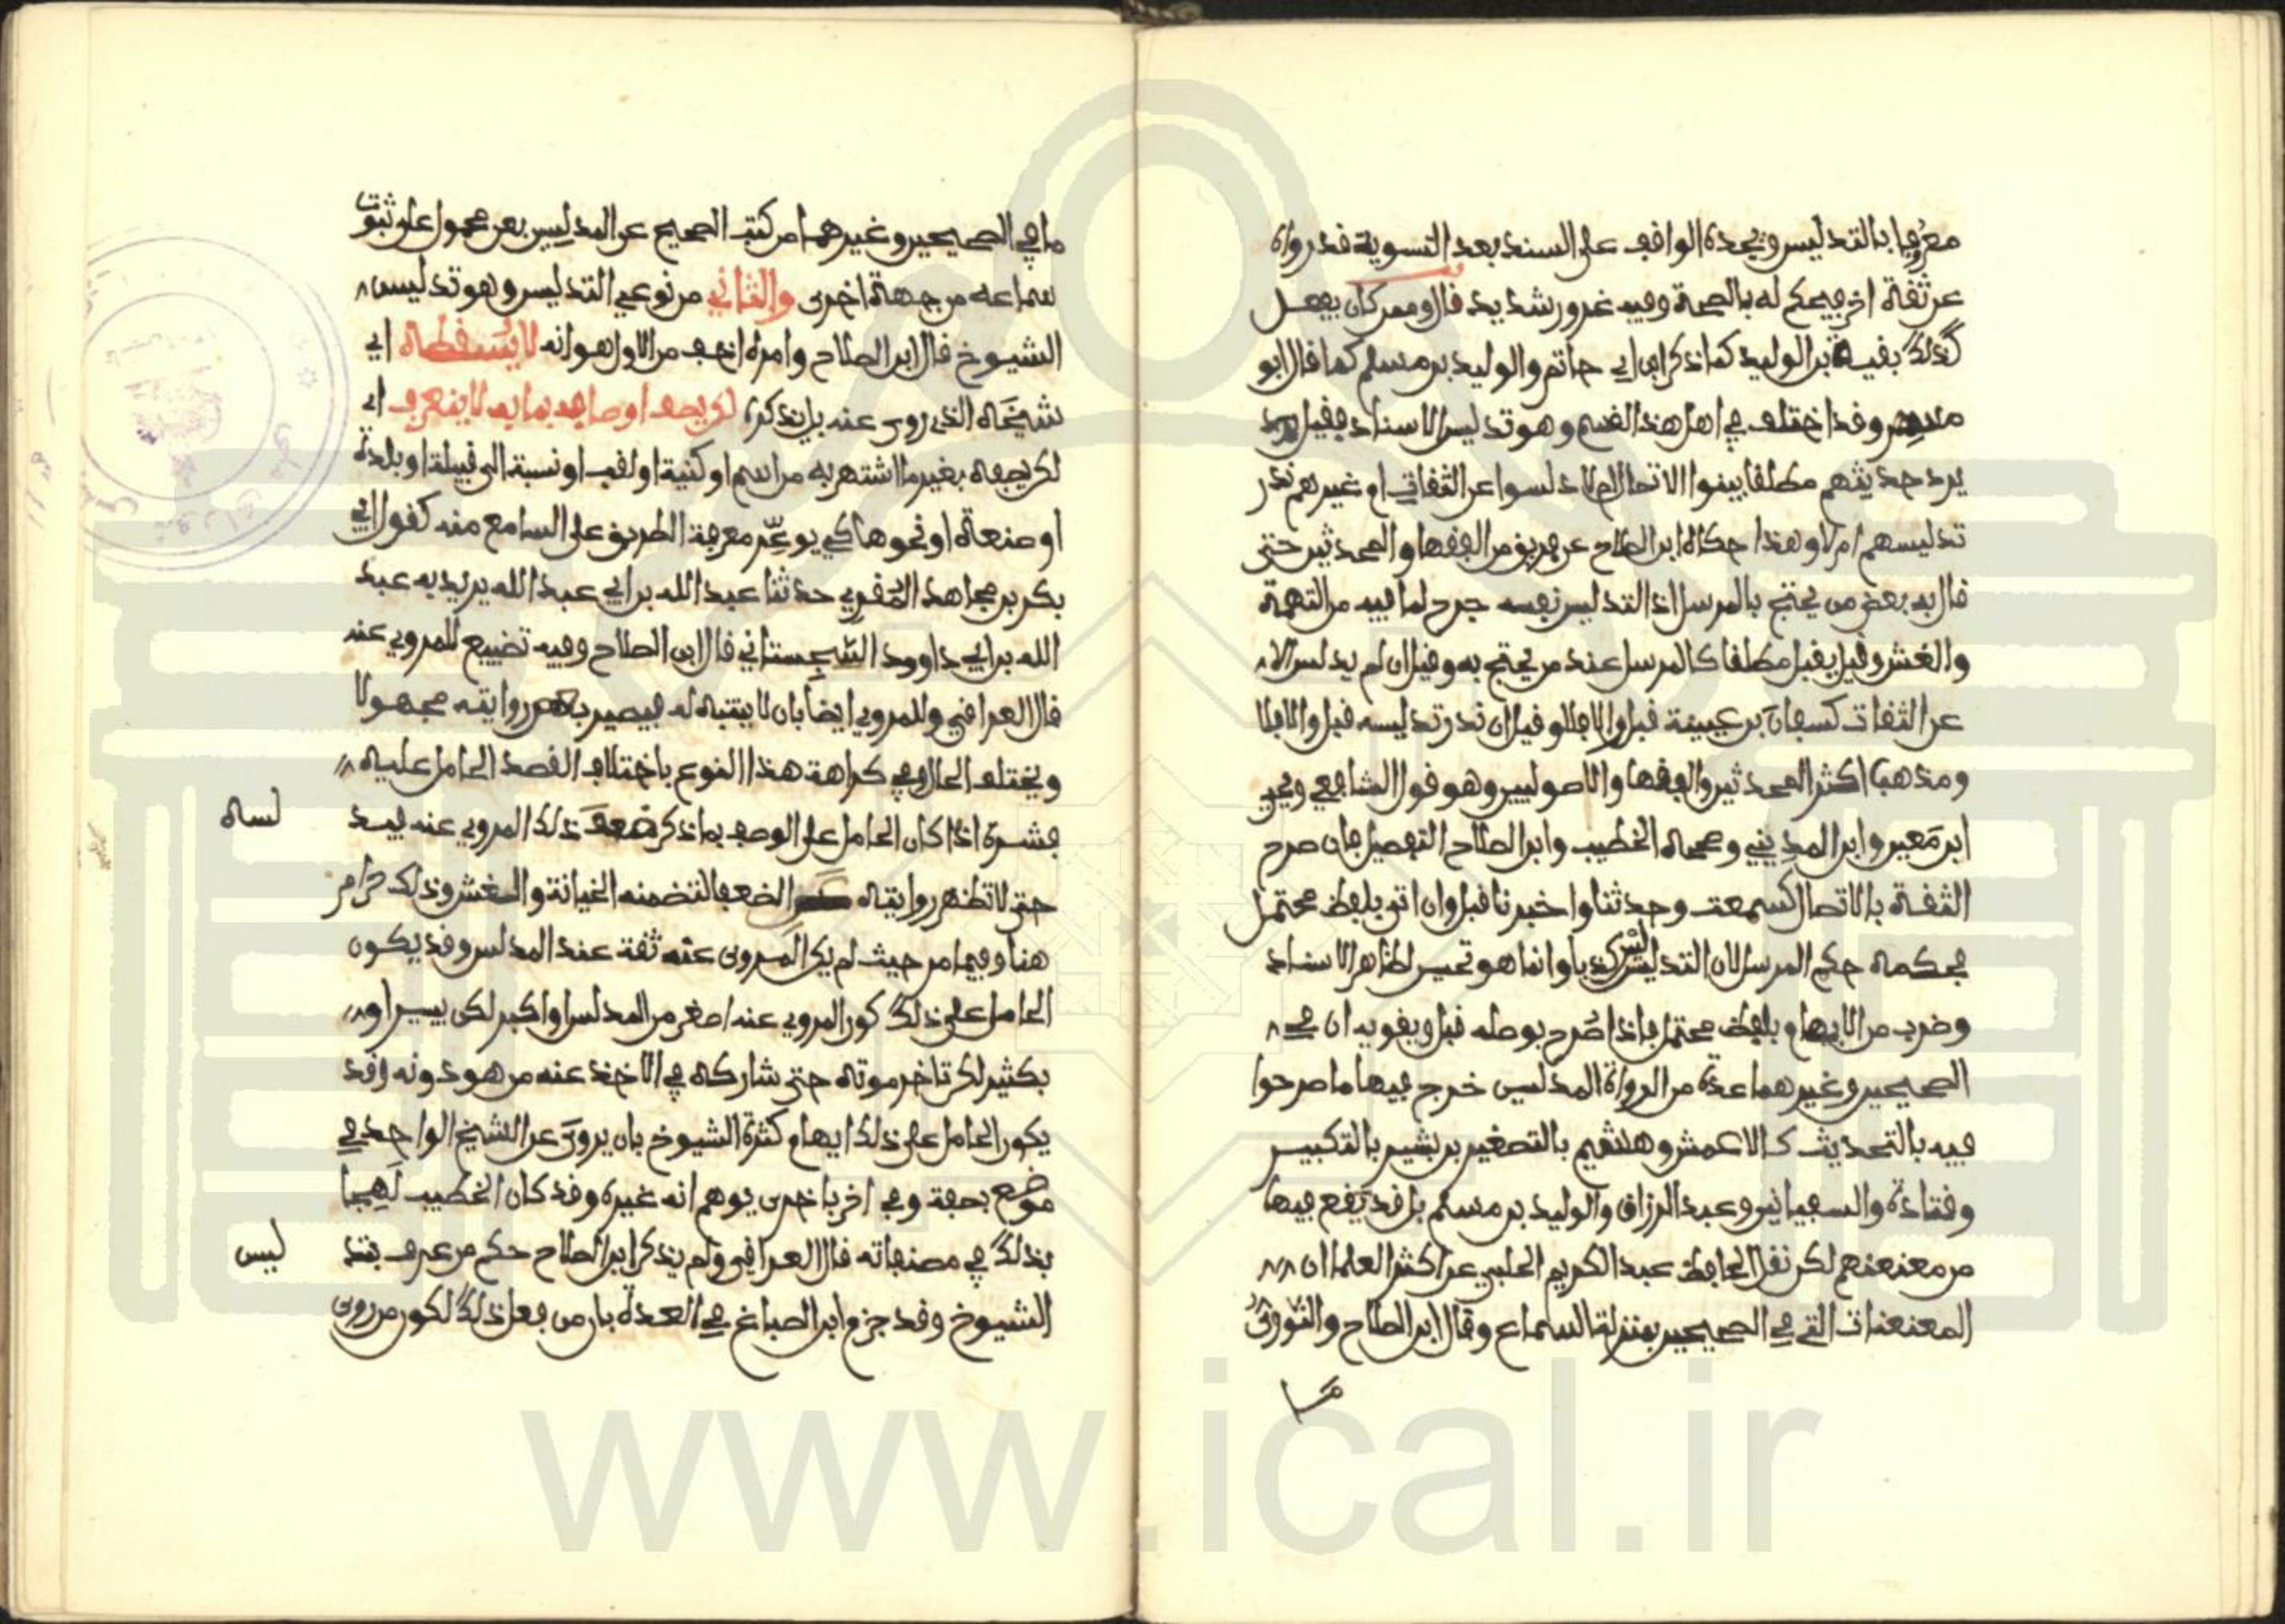 معروفا بالتدليس ويجده الواقف على السند بعد التسوية قد رواه
عن ثقة اخر فيحكم له بالصحة وفيه غرور شديد قال وممن كان يفعل
كذلك بقية بن الوليد كما ذكر ابن ابي حاتم والوليد بن مسلم كما قال ابو
مسهر وقد اختلف في اهل هذا القسم وهو تدليس الاسناد فقيل
يرد حديثهم مطلقا بينوا الاتصال ام لا دلسوا عن الثقات او غيرهم ندر
تدليسهم ام لا وهذا حكاه ابن الصلاح عن فريق من الفقها والمحدثين حتى
قال به بعض من يحتج بالمرسل اذ التدليس نفسه جرح لما فيه من التهمة
والغش وقيل يقبل مطلقا كالمرسل عند من يحتج به وقيل ان لم يدلس الا
عن الثقات كسفيان بن عيينة قبل والا فلا وقيل ان ندر تدليسه قبل والا فلا
ومذهب اكثر المحدثين والفقها والاصوليين وهو قول الشافعي ويحيى
ابن معين وابن المديني وصححه الخطيب وابن الصلاح التفصيل فان صرح
الثقة بالاتصال كسمعت وحدثنا واخبرنا قبل وان اتى بلفظ محتمل
فحكمه حكم المرسل لان التدليس ليس كذبا وانما هو تحسين لظاهر الاسناد
وضرب من الايهام بلفظ محتمل فاذا صرح بوصله قبل ويقويه ان في
الصحيحين وغيرهما عدة من الرواة المدلسين خرج فيها ما صرحوا
فيه بالتحديث كالاعمش وهشيم بالتصغير بن بشير بالتكبير
وقتادة والسفيانين وعبد الرزاق والوليد بن مسلم بل قد يقع فيها
من معنعنهم لكن نقل الحافظ عبد الكريم الحلبي عن اكثر العلما ان
المعنعنات التي في الصحيحين بمنزلة السماع وقال ابن الصلاح والنووي
ما
ما في الصحيحين وغيرهما من كتب الصحيح عن المدلسين بعن محمول على ثبوت
سماعه من جهة اخرى والثاني من نوعي التدليس وهو تدليس
الشيوخ قال ابن الصلاح وامره اخف من الاول هو انه لا يسقطه اي
شيخه الذي روى عنه بل يذكره لكن يصف اوصافه بما به لا ينعرف اي
لكن يصفه بغير ما اشتهر به من اسم او كنية او لقب او نسبة الى قبيلة او بلدة
او صنعة او نحوها كي يوعّر معرفة الطريق على السامع منه كقول ابي
بكر بن مجاهد المقري حدثنا عبد الله بن ابي عبد الله يريد به عبد
الله بن ابي داوود السجستاني قال ابن الصلاح وفيه تضييع للمروي عنه
قال العراقي وللمروي ايضا بان لا يتنبه له فيصير بعض رواته مجهولا
ويختلف الحال في كراهة هذا النوع باختلاف القصد الحامل عليه
فشره اذا كان الحامل على الوصف بما ذكر ضعف ذلك المروي عنه فيد
لسه
حتى لا تظهر روايته عن الضعفا لتضمنه الخيانة والغش وذلك حرام
هنا وفيما مر حيث لم يكن المروى عنه ثقة عند المدلس وقد يكون
الحامل على ذلك كون المروي عنه اصغر من المدلس او اكبر لكن بيسير او
بكثير لكن تاخر موته حتى شاركه في الاخذ عنه من هو دونه وقد
يكون الحامل على ذلك ايهام كثرة الشيوخ بان يروى عن الشيخ الواحد في
موضع بصفة وفي اخر باخرى يوهم انه غيره وقد كان الخطيب لهجا
بذلك في مصنفاته قال العراقي ولم يذكر ابن الصلاح حكم من عرف بتد
ليس
الشيوخ وقد جزم ابن الصباغ في العدة بان من فعل ذلك لكون من روى
www.ical.ir